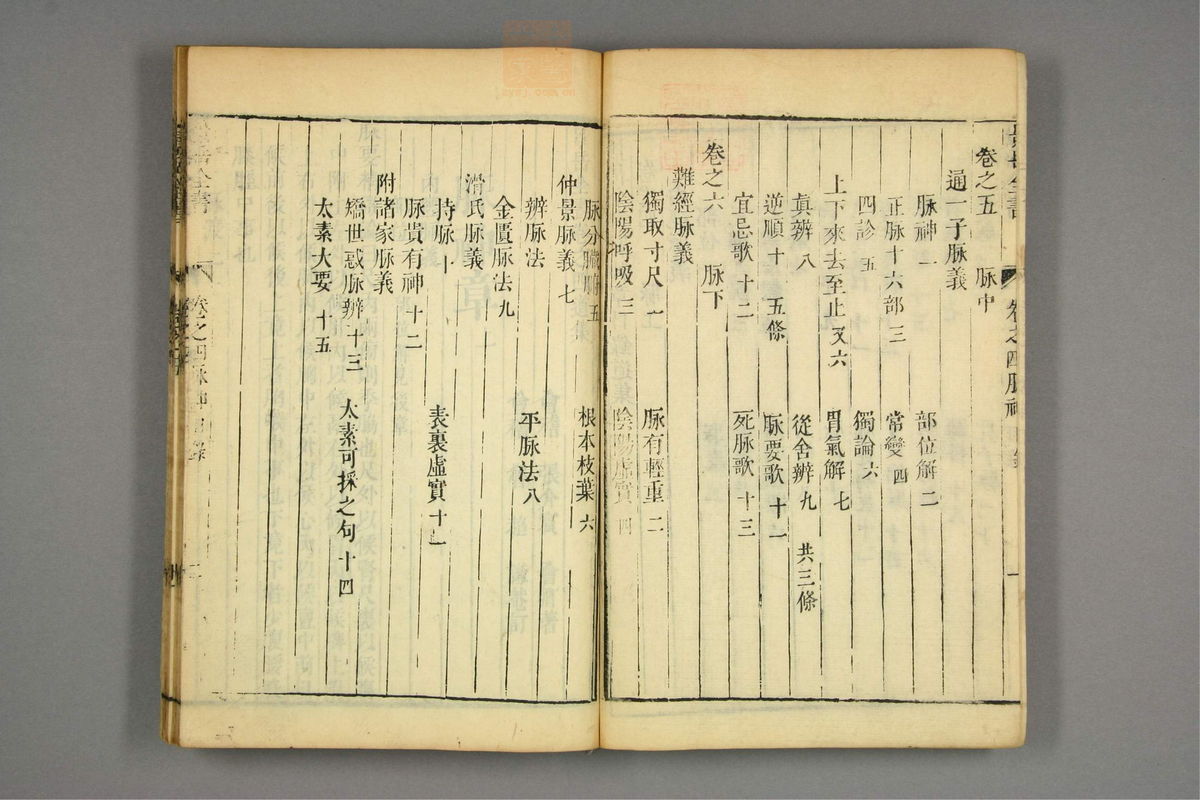 景岳全書 卷之四脉神
卷之五 脉中
通一子脉義
脉神一 部位解二
正脉十六部三 常變四
四診五 獨論六
上下來去至止 又六 胃氣解七
真辨八 從舍辨九 共三條
逆順十 五條 脉要歌十一
宜忌歌十二 死脉歌十三
卷之六 脉下
難經脉義
獨取寸尺一 脉有輕重二
陰陽呼吸三 陰陽虛實四
脉分臓腑五 根本枝葉六
仲景脉義七
辨脉法 平脉法八
金匱脉法九
滑氏脉義
持脉十 表裏虛實十一
脉貴有神十二
附諸家脉義
矯世惑脉辨十三 太素可採之句十四
太素大要十五
全書 卷之四脉神目錄